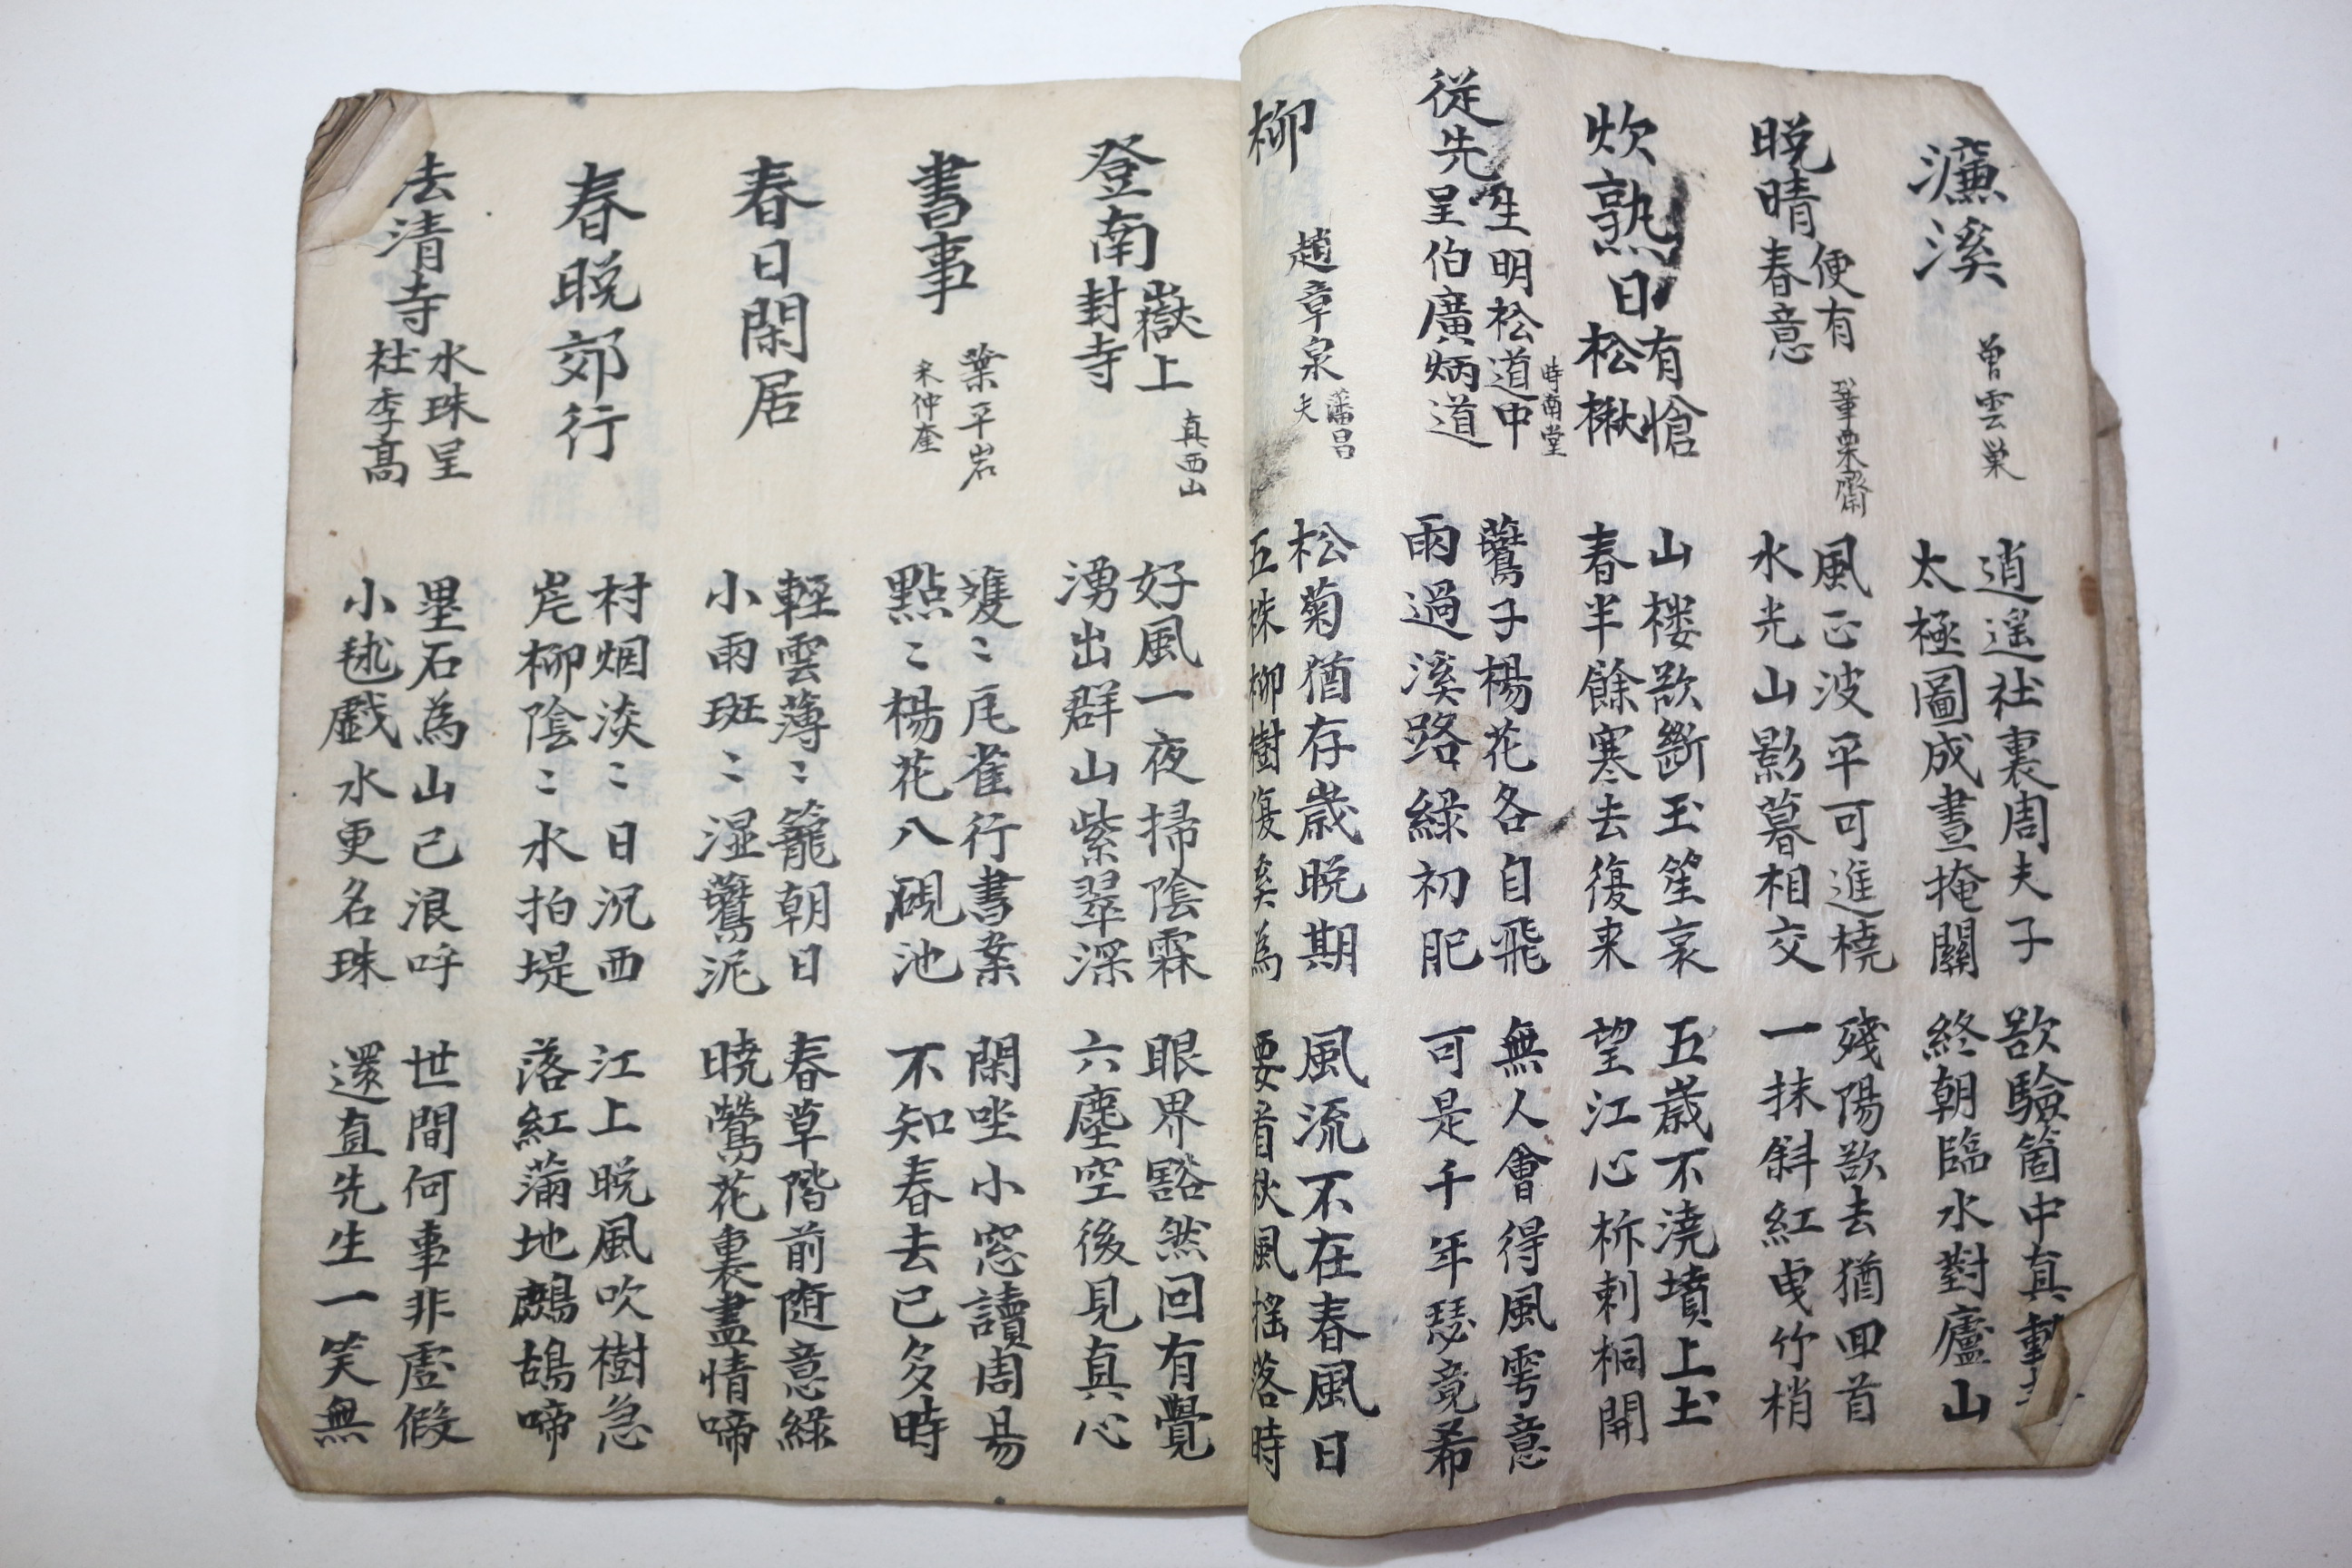 濂溪
曾雲巢
逍遥社裏周夫子
太極圖成晝掩關
欲驗箇中真動
終朝臨水對廬山
晩晴便有
春意
鞏栗齋
風正波平可進橈
水光山影暮相交
殘陽欲去猶回首
一抹斜紅曳竹梢
炊熟日有愴
松楸
山楼欲斷玉笙哀
春半餘寒去復来
五歳不澆墳上土
望江心柝刺桐開
従先生明松道中
呈伯廣炳道
時南堂
鷰子楊花各自飛
雨過溪路緑初肥
無人會得風雩意
可是千年瑟竟希
柳
趙章泉
藩昌
夫
松菊猶存歳晩期
五株柳樹復奚為
風流不在春風日
要看秋風揺落時
登南嶽上
封寺
真西山
好風一夜掃陰霖
湧出群山紫翠深
眼界豁然回有覺
六塵空後見真心
書事
葉平岩
宋仲奎
雙〻瓦雀行書案
點〻楊花入硯池
閑坐小窓讀周易
不知春去已多時
春日閑居
輕雲薄〻籠朝日
小雨斑〻湿鷰泥
春草階前随意緑
暁鶯花裏盡情啼
春晩郊行
村烟淡〻日沉西
岸柳陰〻水拍堤
江上晩風吹樹急
落紅滿地鷓鴣啼
法清寺水珠呈
社季高
壘石為山已浪呼
小毬戲水更名珠
世間何事非虚假
還直先生一笑無